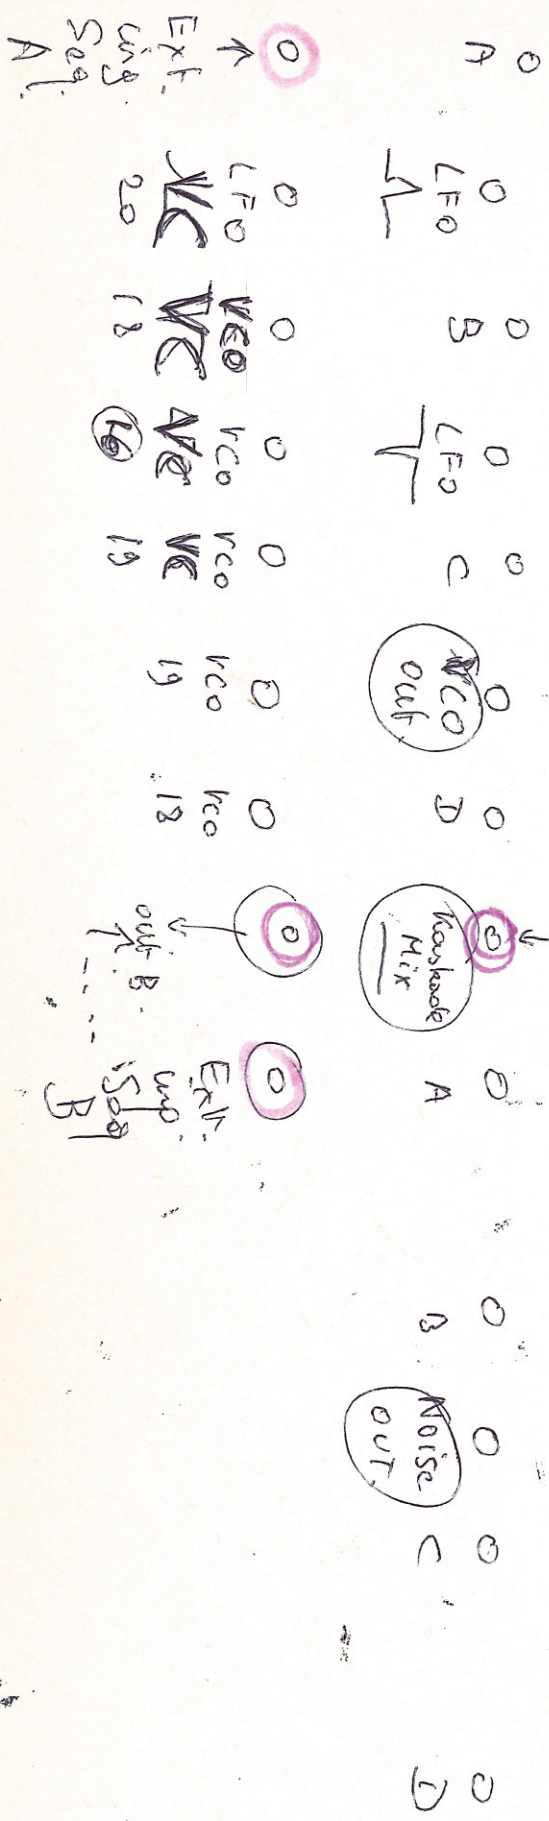 A
LFO
B
LFO
C
VCO
out
D
Kaskade
Mix
A
B
Noise
OUT
C
D
Ext.
Seq.
A
LFO
VC
20
VCO
VC
18
VCO
VC
16
VCO
VC
19
VCO
19
VCO
18
out B
Ext.
Seq
B